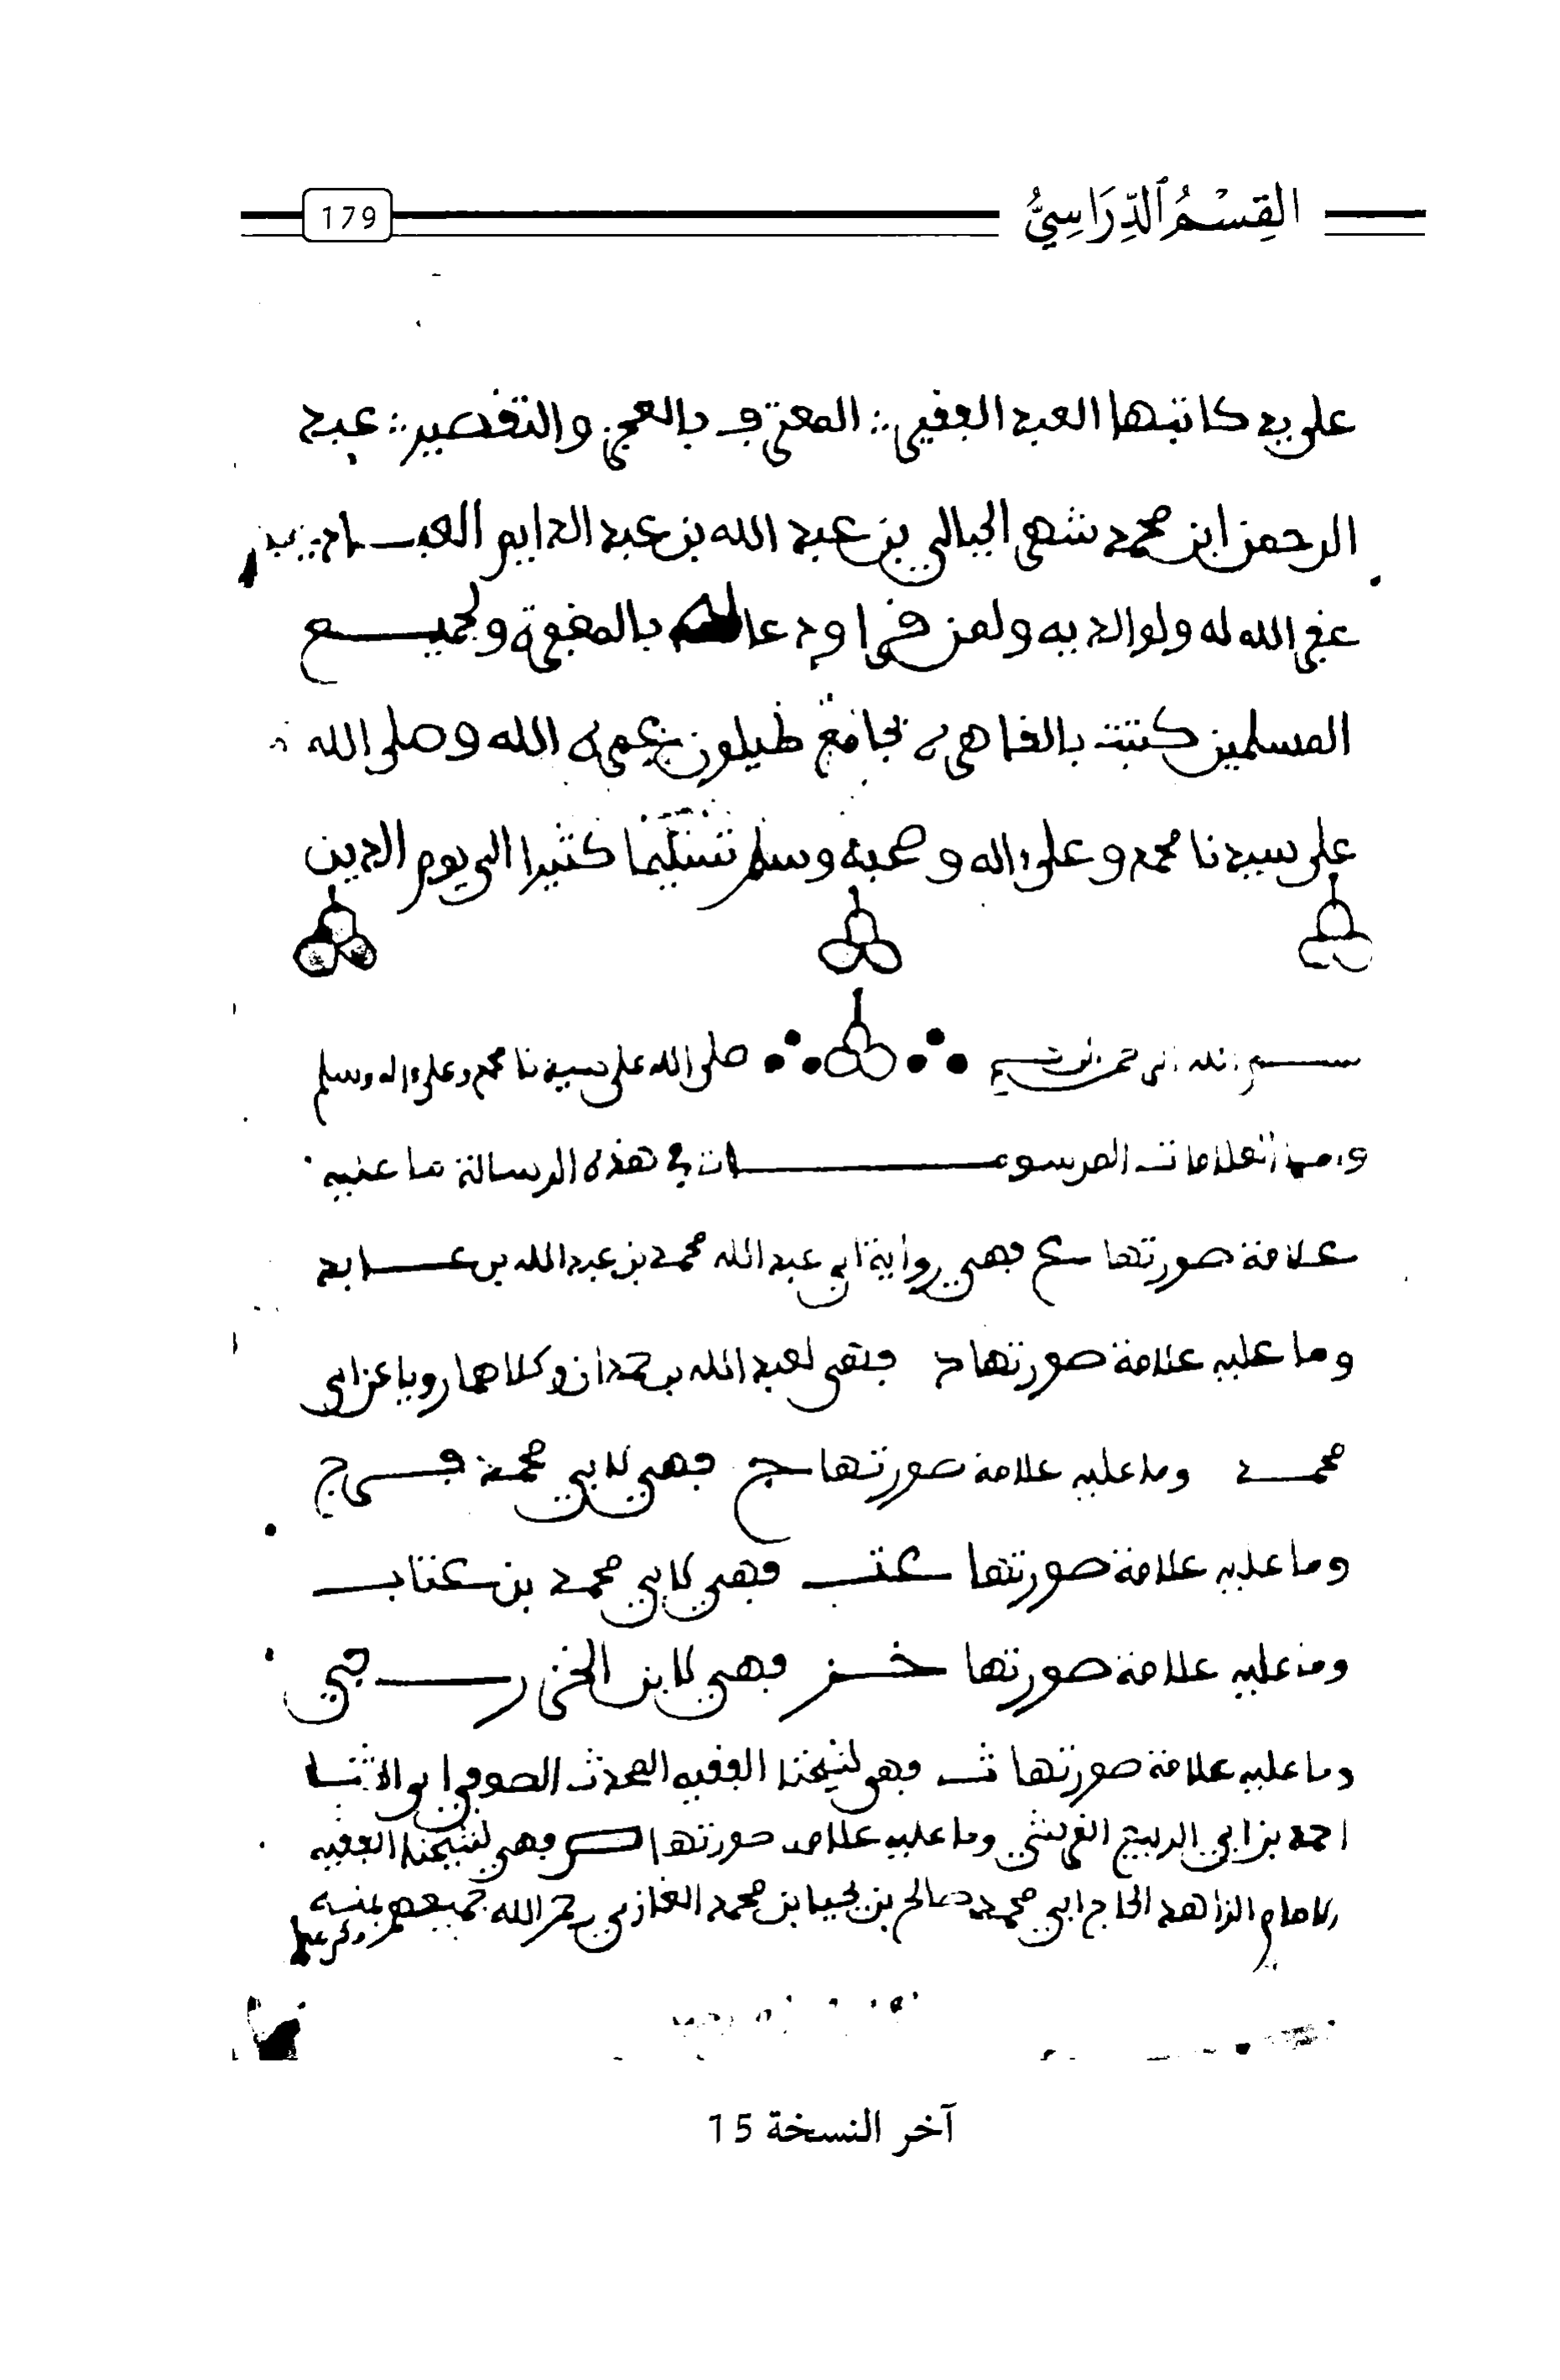 القِسْمُ ٱلدِّرَاسِيُّ 179
على يد كاتبها العبد الفقير المعترف بالعجز والتقصير عبد
الرحمن ابن محمد شهر الجبالي بن عبد الله بن عبد الدايم
غفر الله له ولوالديه ولمن قرا ودعا له بالمغفرة ولجميع
المسلمين كتبت بالقاهرة بجامع طيلون بعمره الله وصلى الله
على سيدنا محمد وعلى ءاله وصحبه وسلم تسليما كثيرا الى يوم الدين
بسم الله الرحمن الرحيم صلى الله على سيدنا محمد وعلى ءاله وسلم
العلامات المرسومات في هذه الرسالة ما عليه
علامة صورتها ع فهي رواية ابي عبد الله محمد بن عبد الله بن عابد
وما عليه علامة صورتها د فهي لعبد الله بن حمدان وكلاهما رويا عن ابي
محمد وما عليه علامة صورتها ج فهي لابي محمد فرج
وما عليه علامة صورتها عتب فهي لابي محمد بن عتاب
وما عليه علامة صورتها خز فهي لابن الخزرجي
وما عليه علامة صورتها ث فهي لشيخنا الفقيه المحدث الصوفي ابو الثنا
احمد بن ابي الربيع وما عليه علامة صورتها فهي لشيخنا الفقيه
الامام الزاهد الحاج ابي محمد صالح بن يحيا بن محمد رحم الله جميعهم بمنه وكرمه
آخر النسخة 15